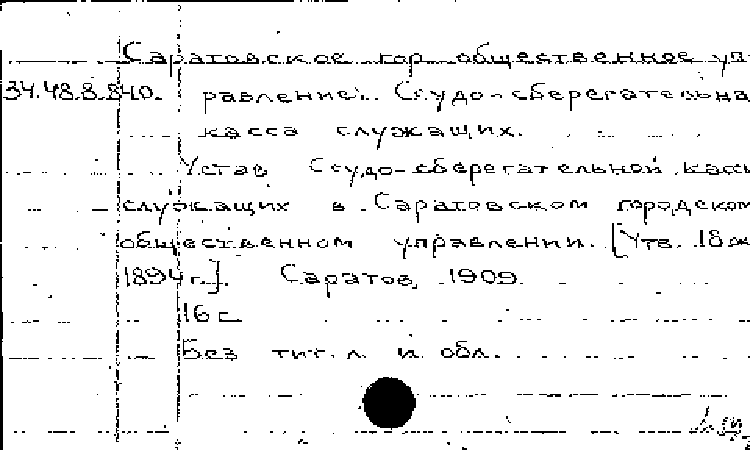 Саратовское гор. общественное уп-
34.48.8.840. равление. Ссудо-сберегательна
касса служащих.
Устав Ссудо-сберегательной касс
служащих в Саратовском городском
общественном управлении. [Утв. 18
1894 г.]. Саратов, 1909.
16 с.
Без тит. л. и обл.